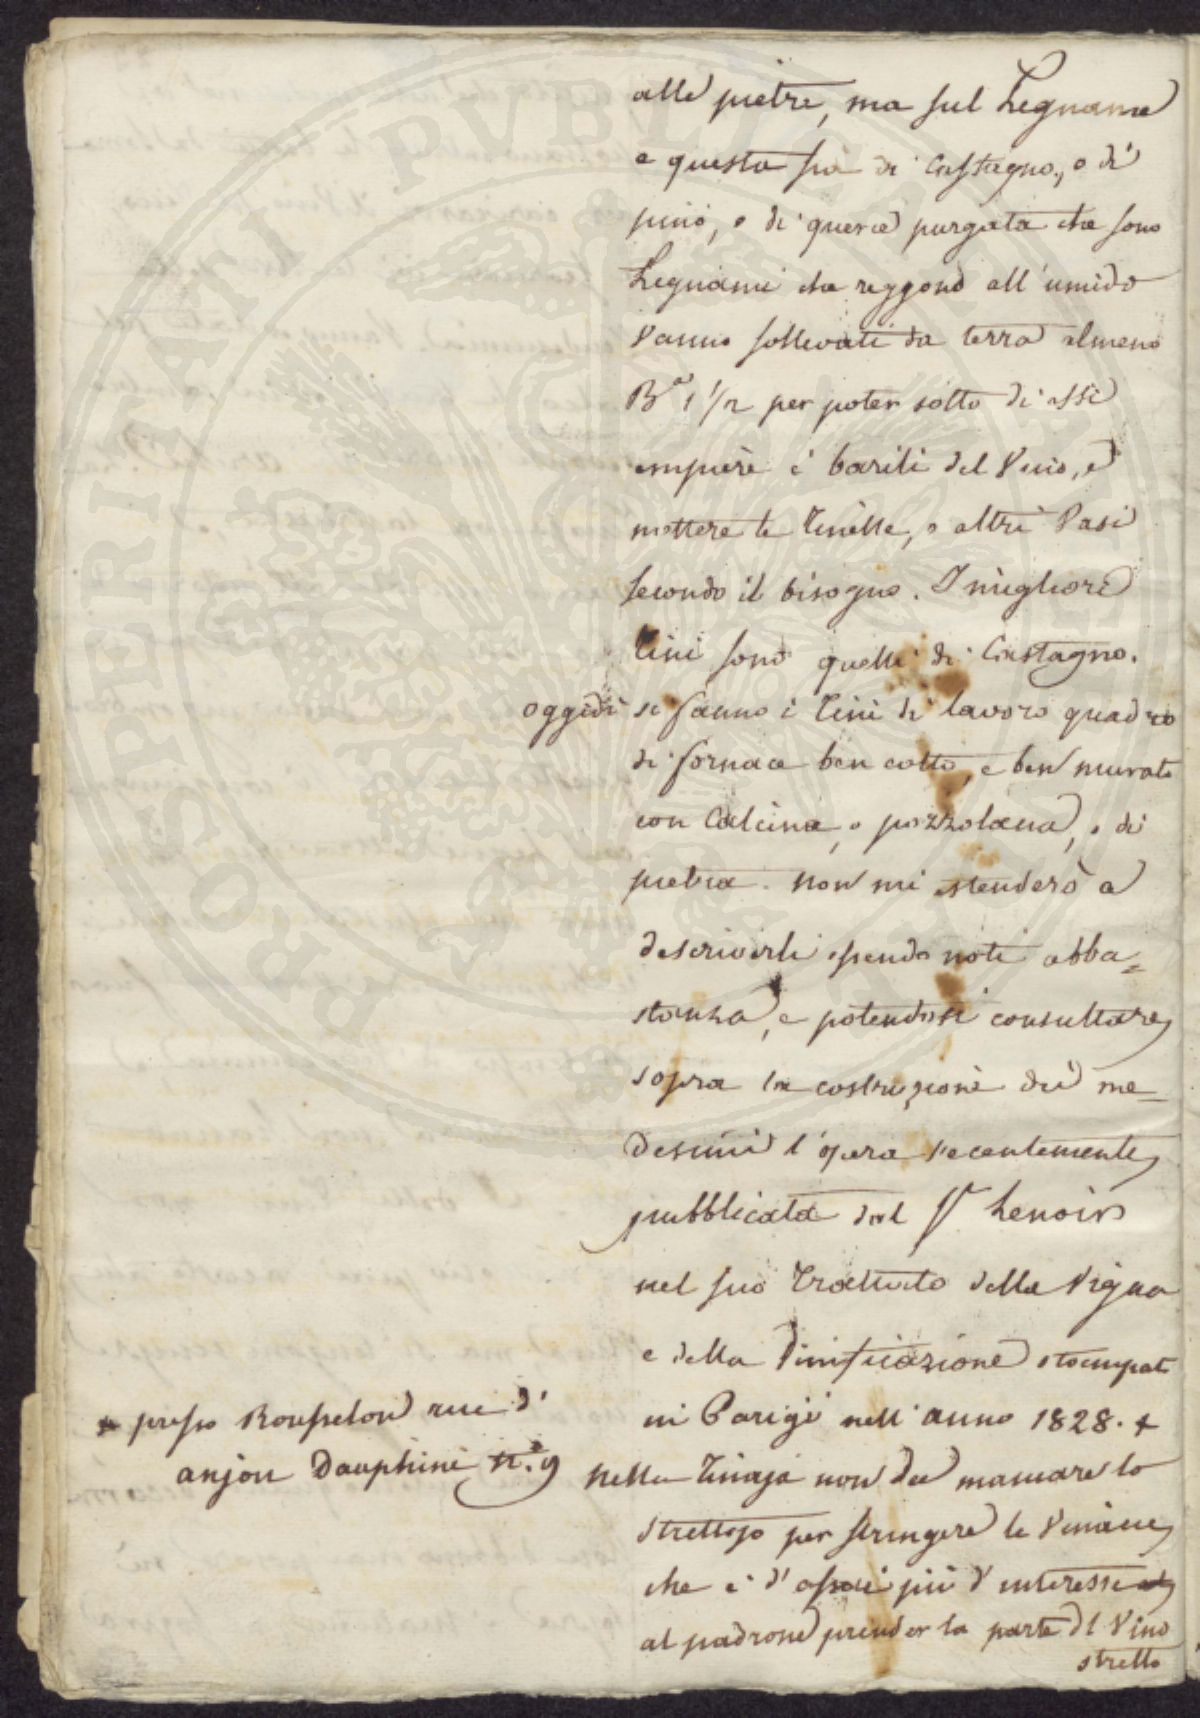 alle pietre, ma sul Legname
e questo sia di Castagno, o di
pino, o di querce purgata che sono
Legnami che reggono all'umido
Vanno sollevati da terra almeno
Bª 1 1/2 per poter sotto di essi
empiere i barili del Vino, e
mettere le Tinelle, o altri Vasi
secondo il bisogno. I migliori
Tini sono quelli di Castagno.
oggidì si fanno i Tini di lavoro quadro
di fornace ben cotto, e ben murati
con Calcina, o pozzolana, o di
pietra. non mi estenderò a
descriverli essendo noti abba=
stanza, e potendosi consultare
sopra la costruzione dei me=
desimi l'opera recentemente
pubblicata dal Sr Lenoir
nel suo Trattato della Vigna
e della Vinificazione stampato
in Parigi nell'anno 1828. +
+ presso Rousselon rue d'
anjou Dauphine n.° 9
nella Tinaja non dee mancare lo
strettojo per stringere le Vinacce
che è d'assai più d'interesse
al padrone prender la parte del Vino
stretto
PROSPERITATI PVBLICAE